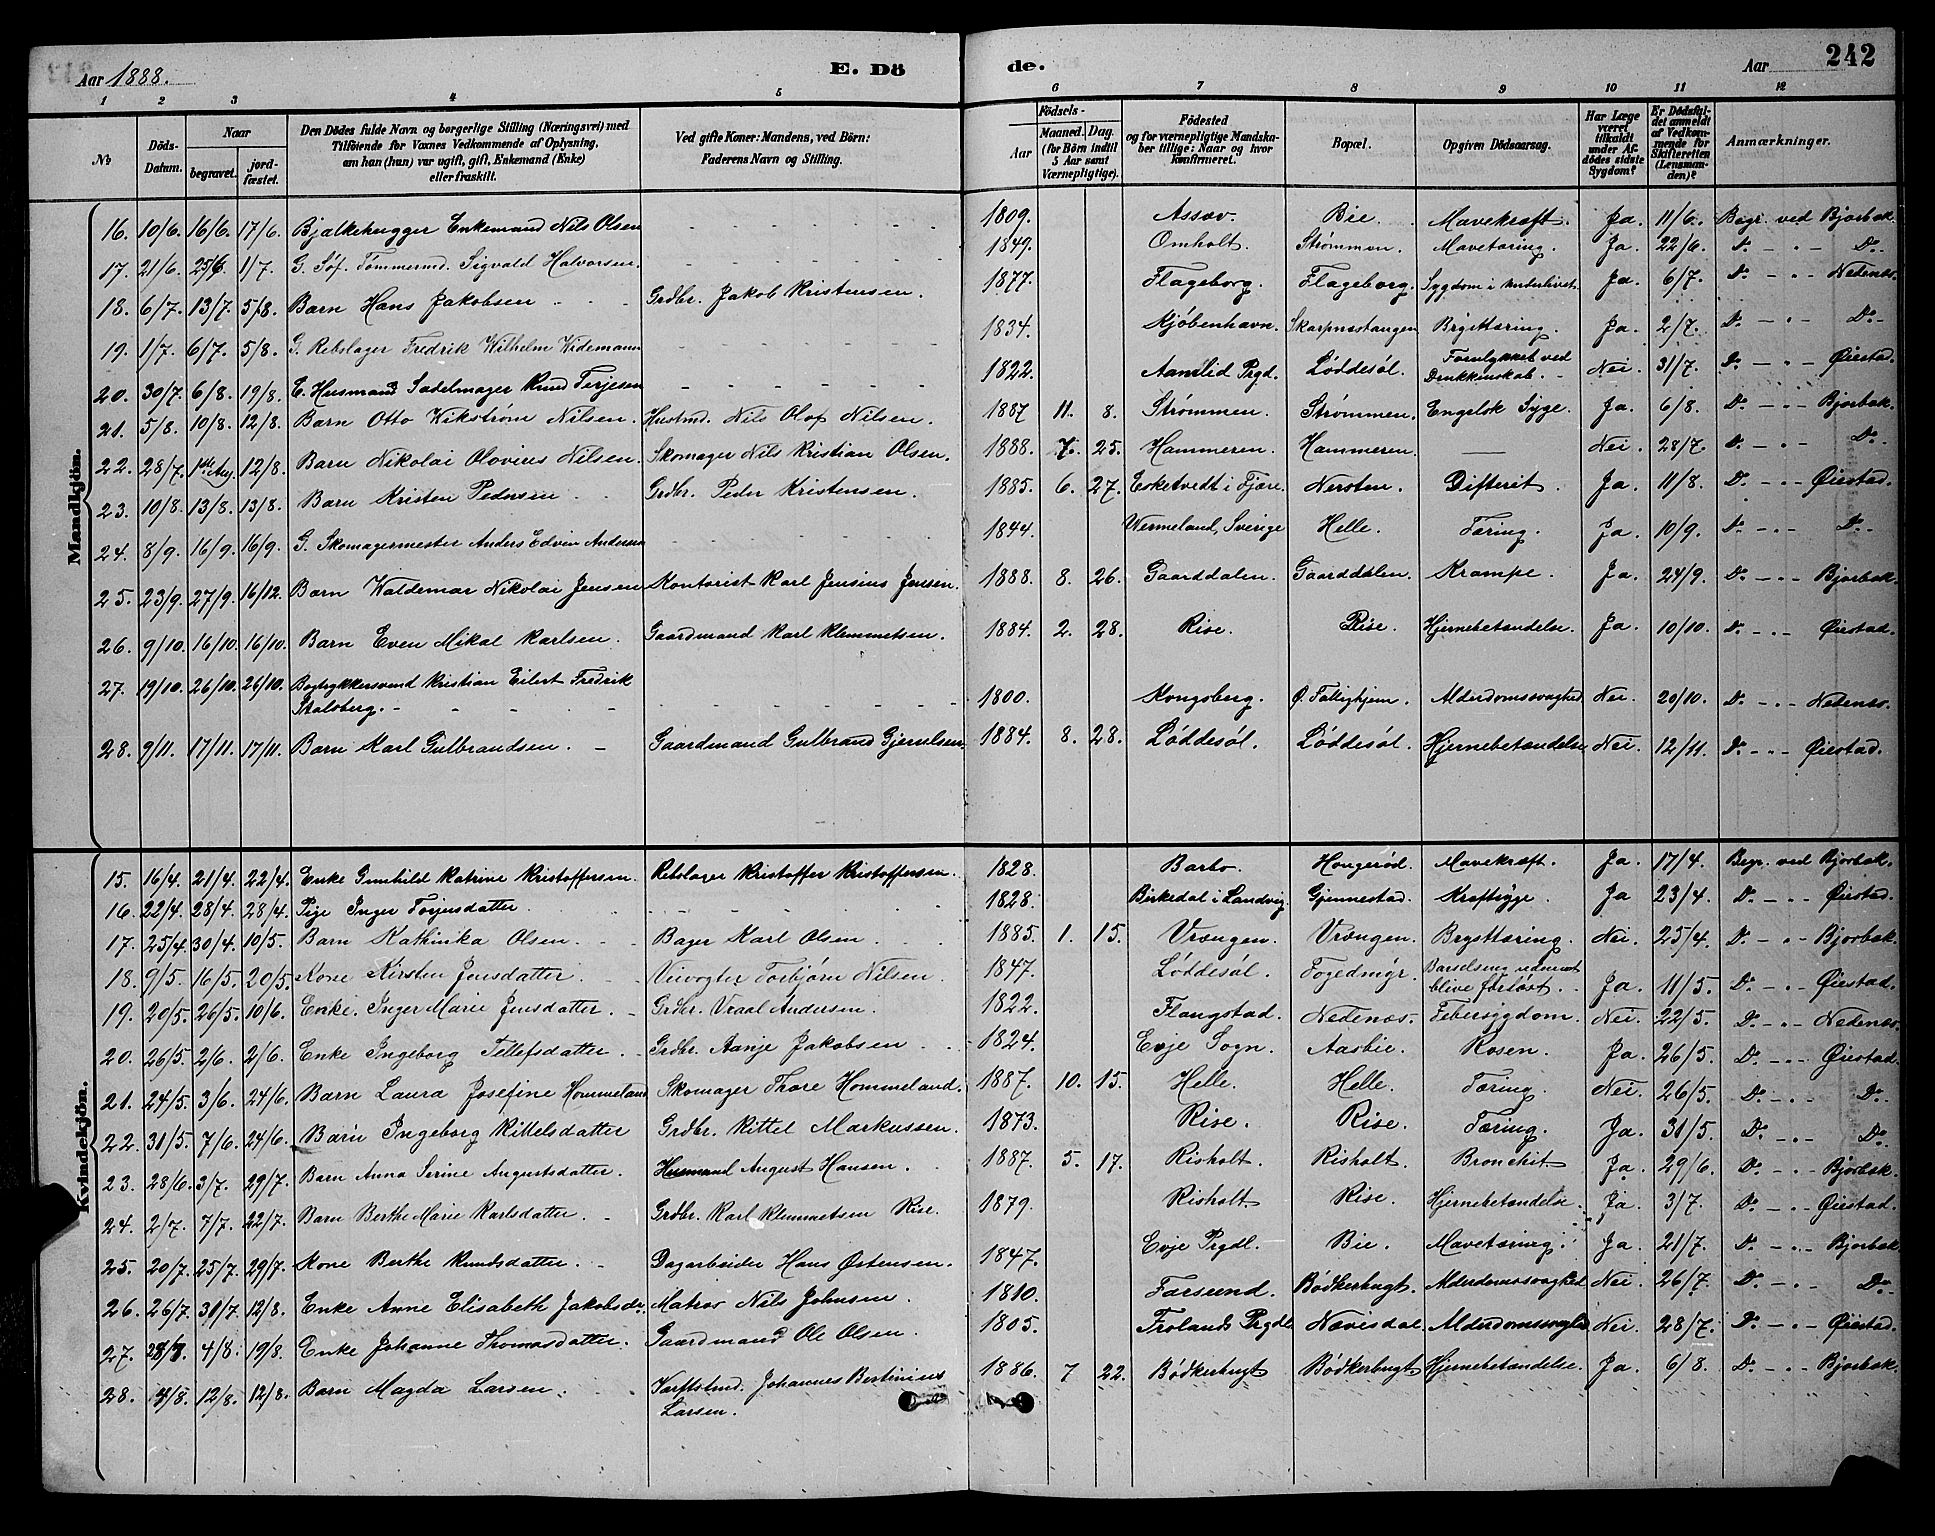 Aar 1888. E. Dö
de. Aar 242
1 2 3 4 5 6 7 8 9 10 11 12
No
Döds-Datum.
Naar
begravet.
jord-fæstet.
Den Dödes fulde Navn og borgerlige Stilling (Næringsvei) med
Tilföiende for Voxnes Vedkommende af Oplysning,
om han (hun) var ugift, gift, Enkemand (Enke)
eller fraskilt.
Ved gifte Koner: Mandens, ved Börn:
Faderens Navn og Stilling.
Födsels-
Aar
Maaned. Dag.
(for Börn indtil
5 Aar samt
Værnepligtige).
Födested
og for værnepligtige Mandska-
ber tillige: Naar og hvor
konfirmeret.
Bopæl.
Opgiven Dödsaarsag.
Har Læge
været
tilkaldt
under Af-
dödes sidste
Sygdom?
Er Dödsfal-
det anmeldt
af Vedkom-
mende for
Skifteretten
(Lensman-
den)?
Anmærkninger.
Mandkjön.
16. 10/6. 16/6. 17/6. Bjælkehugger Enkemand Nils Olsen - 1809. Assæv. Bie. Mavekræft. Ja. 11/6. Begr. ved Bjorbæk.
17. 21/6. 25/6. 1/7. G. Søf. Tømmermd. Sigvald Halvorsen. - 1849. Omholt. Strømmen. Mavetæring. Ja. 22/6. Do. - " - Do.
18. 6/7. 13/7. 5/8. Barn Hans Jakobsen Grdbr. Jakob Kristensen. 1877. Flageborg. Flageborg. Sygdom i Underlivet. Ja. 6/7. Do. - " - Nedenæs.
19. 1/7. 6/7. 5/8. G. Rebslager Fredrik Wilhelm Widemann - 1834. Kjöbenhavn. Skarpnæstangen Brysttæring. Ja. 2/7. Do. - " - Do.
20. 30/7. 6/8. 19/8. E. Husmand Sadelmager Knud Terjesen - 1822. Aamlid Prgd. Løddesøl. Forulykket ved Drukkenskab. Nei. 31/7. Do. - " - Øiestad.
21. 5/8. 10/8. 12/8. Barn Otto Wikstrøm Nilsen. Husmd. Nils Olof Nilsen. 1887 11. 8. Strømmen. Strømmen. Engelsk Syge. Ja. 6/8. Do. - " - Bjorbæk.
22. 28/7. 1ste Aug. 12/8. Barn Nikolai Olovius Nilsen. Skomager Nils Kristian Olsen. 1888. 7. 25. Hammeren. Hammeren. — Nei. 28/7. Do. - " - Do.
23. 10/8. 13/8. 13/8. Barn Kristen Pedersen Grdbr. Peder Kristensen. 1885. 6. 27. Esketvedt i Fjære. Nersten. Difterit. Ja. 11/8. Do. - " - Øiestad.
24. 8/9. 16/9. 16/9. G. Skomagermester Anders Edvin Andersen - 1844. Wermeland, Sverige Helle. Tæring. Ja. 10/9. Do. - " - Do.
25. 23/9. 27/9. 16/12. Barn Waldemar Nikolai Jensen Kontorist Karl Jensius Jensen. 1888. 8. 26. Gaarddalen. Gaarddalen. Krampe. Ja. 24/9. Do. - " - Bjorbæk.
26. 9/10. 16/10. 16/10. Barn Even Mikal Karlsen. Gaardmand Karl Klemmetsen. 1884. 2. 28. Rise. Rise. Hjernebetændelse. Ja. 10/10. Do. - " - Øiestad.
27. 19/10. 26/10. 26/10. Bogtrykkersvend Kristian Eilert Fredrik
Skalsberg. - 1800. Kongsberg. Ø. Fattighjem. Alderdomssvaghed Nei. 20/10. Do. - " - Nedenæs.
28. 9/11. 17/11. 17/11. Barn Karl Gulbrandsen. - Gaardmand Gulbrand Gjerulsen. 1884. 8. 28. Løddesøl. Løddesøl. Hjernebetændelse Nei. 12/11. Do. - " - Øiestad.
Kvindekjön.
15. 16/4. 21/4. 22/4. Enke Gunhild Katrine Kristoffersen. Rebslager Kristoffer Kristoffersen. 1828. Barbo. Hongerød. Mavekræft. Ja. 17/4. Begr. ved Bjorbæk.
16. 22/4. 28/4. 28/4. Pige Inger Torjusdatter - 1828. Birkedal i Landvig. Gjennestad. Kræftsyge. Ja 23/4. Do. - " Øiestad.
17. 25/4. 30/4. 10/5. Barn Kathinka Olsen. Bager Karl Olsen. 1885. 1. 15. Vrængen. Vrængen. Brysttæring. Nei. 25/4. Do. - " - Bjorbæk.
18. 9/5. 16/5. 20/5. Kone Kirsten Jensdatter. Veivogter Torbjørn Nilsen. 1847. Løddesøl. Fogedmyr. Barselseng uden at blive forløst. Ja. 11/5. Do. - " - Øiestad.
19. 20/5. 26/5. 10/6. Enke. Inger Marie Jensdatter. Grdbr. Vraal Andersen. 1822. Flangstad. Nedenæs. Febersygdom. Nei. 22/5. Do. - " - Nedenæs.
20. 26/5. 2/6. 2/6. Enke Ingeborg Tellefsdatter. Grdbr. Aanje Jakobsen 1824. Evje Sogn. Aasbie. Rosen. Ja. 26/5. Do. - " - Øiestad.
21. 24/5. 3/6. 24/6. Barn Laura Josefine Hommeland Skomager Thore Hommeland. 1887. 10. 15. Helle. Helle. Tæring. Nei. 26/5. Do. - " - Do.
22. 31/5. 7/6. 24/6. Barn Ingeborg Kittelsdatter Grdbr. Kittel Markussen. 1873. Rise. Rise. Tæring. Ja. 31/5. Do. - " - Do.
23. 28/6. 3/7. 29/7. Barn Anna Serine Augustsdatter. Husmand August Hansen. 1887. 5. 17. Risholt. Risholt. Bronchit. Ja. 29/6. Do. - " - Bjorbæk.
24. 2/7. 7/7. 22/7. Barn Berthe Marie Karlsdatter. Grdbr. Karl Klemmetsen Rise. 1879. Risholt. Rise. Hjernebetændelse. Ja. 3/7. Do. - " - Øiestad.
25. 20/7. 25/7. 29/7. Kone Berthe Knudsdatter. Dagarbeider Hans Østensen. 1847. Evje Prgdl. Bie. Mavetæring. Ja. 21/7. Do. - " - Bjorbæk.
26. 26/7. 31/7. 12/8. Enke Anne Elisabeth Jakobsdr. Matros Nils Johnsen. 1810. Farsund. Bødkerbugt. Alderdomssvaghed Nei. 26/7. Do. - " - Do.
27. 28/7. 4/8. 19/8. Enke Johanne Thomasdatter. Gaardmand Ole Olsen. 1805. Frolands Prgdl. Nævisdal. Alderdomssvaghed Nei. 28/7. Do. - " - Øiestad.
28. 4/8. 12/8. 12/8. Barn Magda Larsen. Værftstmd. Johannes Bertinius
Larsen. 1886. 7 22. Bødkerbugt Bødkerbugt Hjernebetændelse. Ja. 6/8. Do. - " - Bjorbæk.